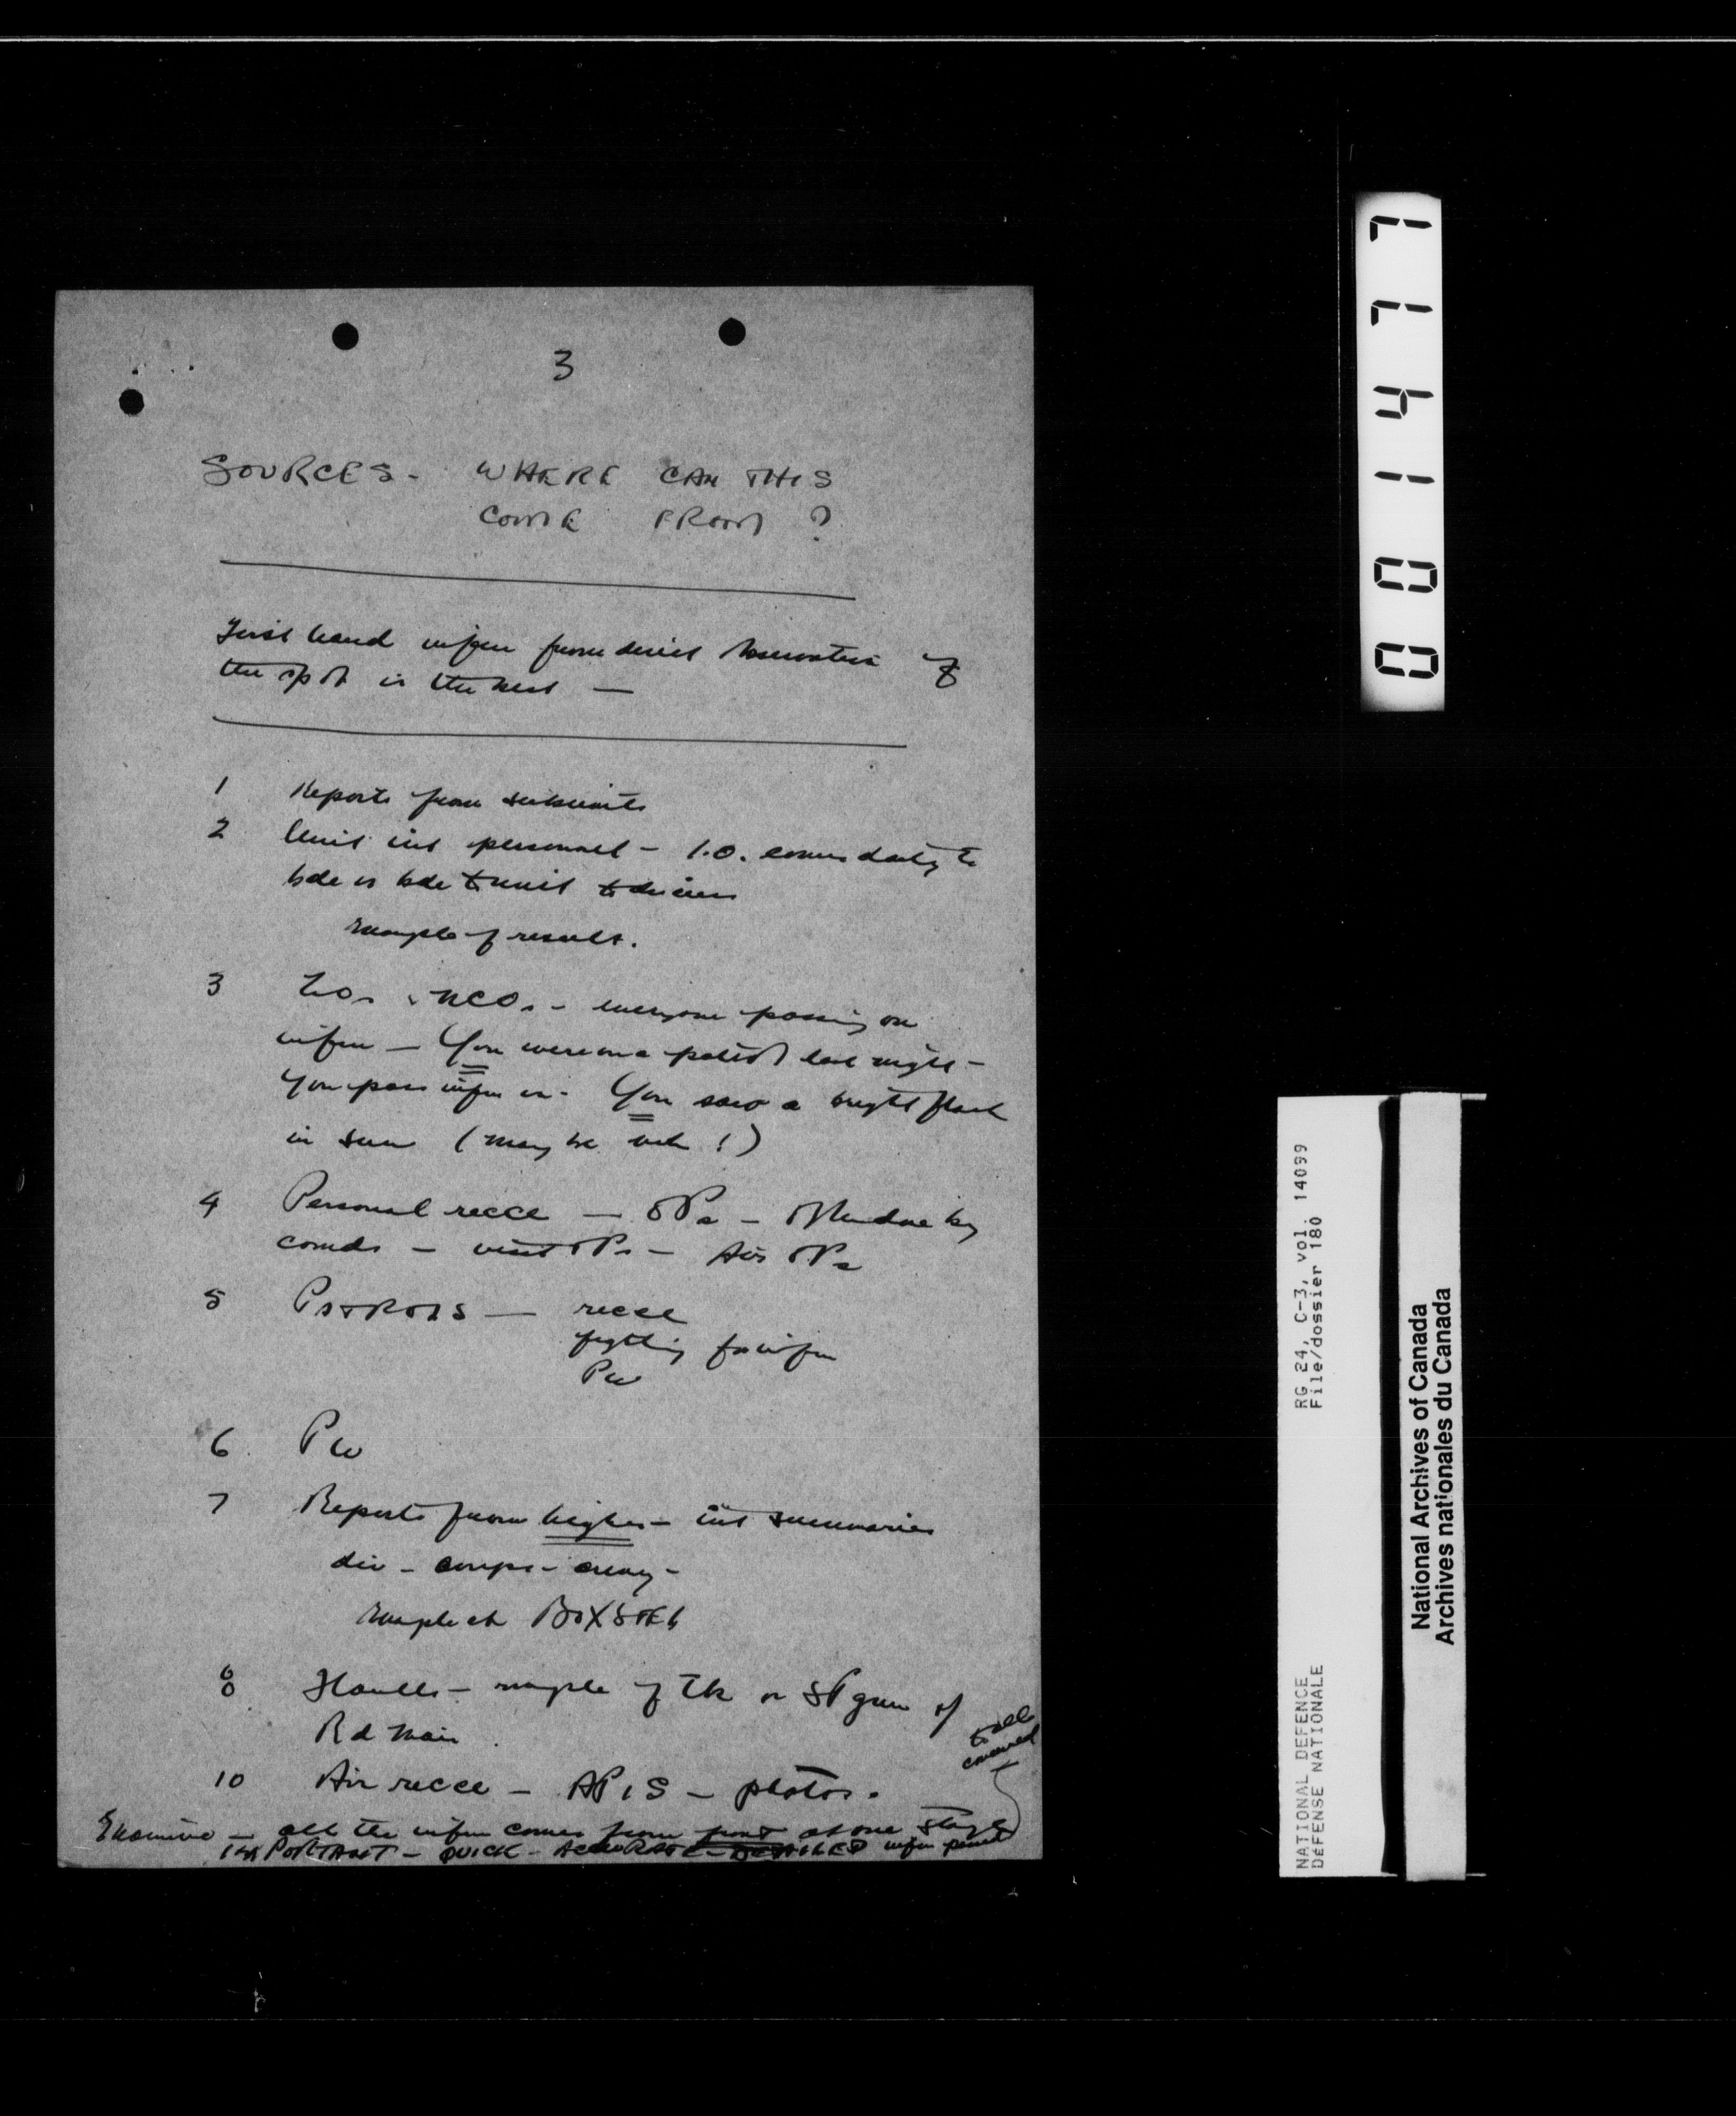 3
SOURCES - WHERE CAN THIS
COME FROM ?
First hand infm from direct observation of
the spot is the best —
1 Reports from subunits
2 Unit int personnel - I.O. comes daily to
bde or bde to unit
example of results.
3 LOs & NCOs - everyone passing on
infm - You were on a patrol last night -
You pass infm on - You saw a bright flash
in sun (may be veh !)
4 Personal recce — OPs - Often done by
comds - visit OPs - Air OPs
5 PATROLS — recce
fighting for infm
PW
6 PW
7 Reports from higher - int summaries
div - corps - army -
example at BOXSTEL
8 Flanks - example of Tk or SP gun of
R d Mais
10 Air recce - APIS - photos.
to all
concerned
Examine — all the infm comes from front at one stage
IMPORTANT - QUICK - ACCURATE - DETAILED infm
001477
RG 24, C-3, vol. 14099
File/dossier 180
NATIONAL DEFENCE
DÉFENSE NATIONALE
National Archives of Canada
Archives nationales du Canada